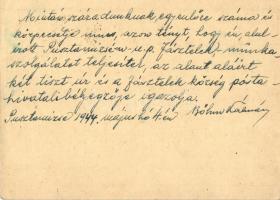 Miután századunknak egyenlőre száma és
körpecsétje nincs, azon tényt, hogy én, alul-
irott Pusztamizsén u.p. Jásztelek munka-
szolgálatot teljesitek, az alant aláirt
két tiszt úr és a Jásztelek község posta-
hivatali bélyegzője igazolja.
Pusztamizse 1944. május hó 4.-én Böhm Kálmán